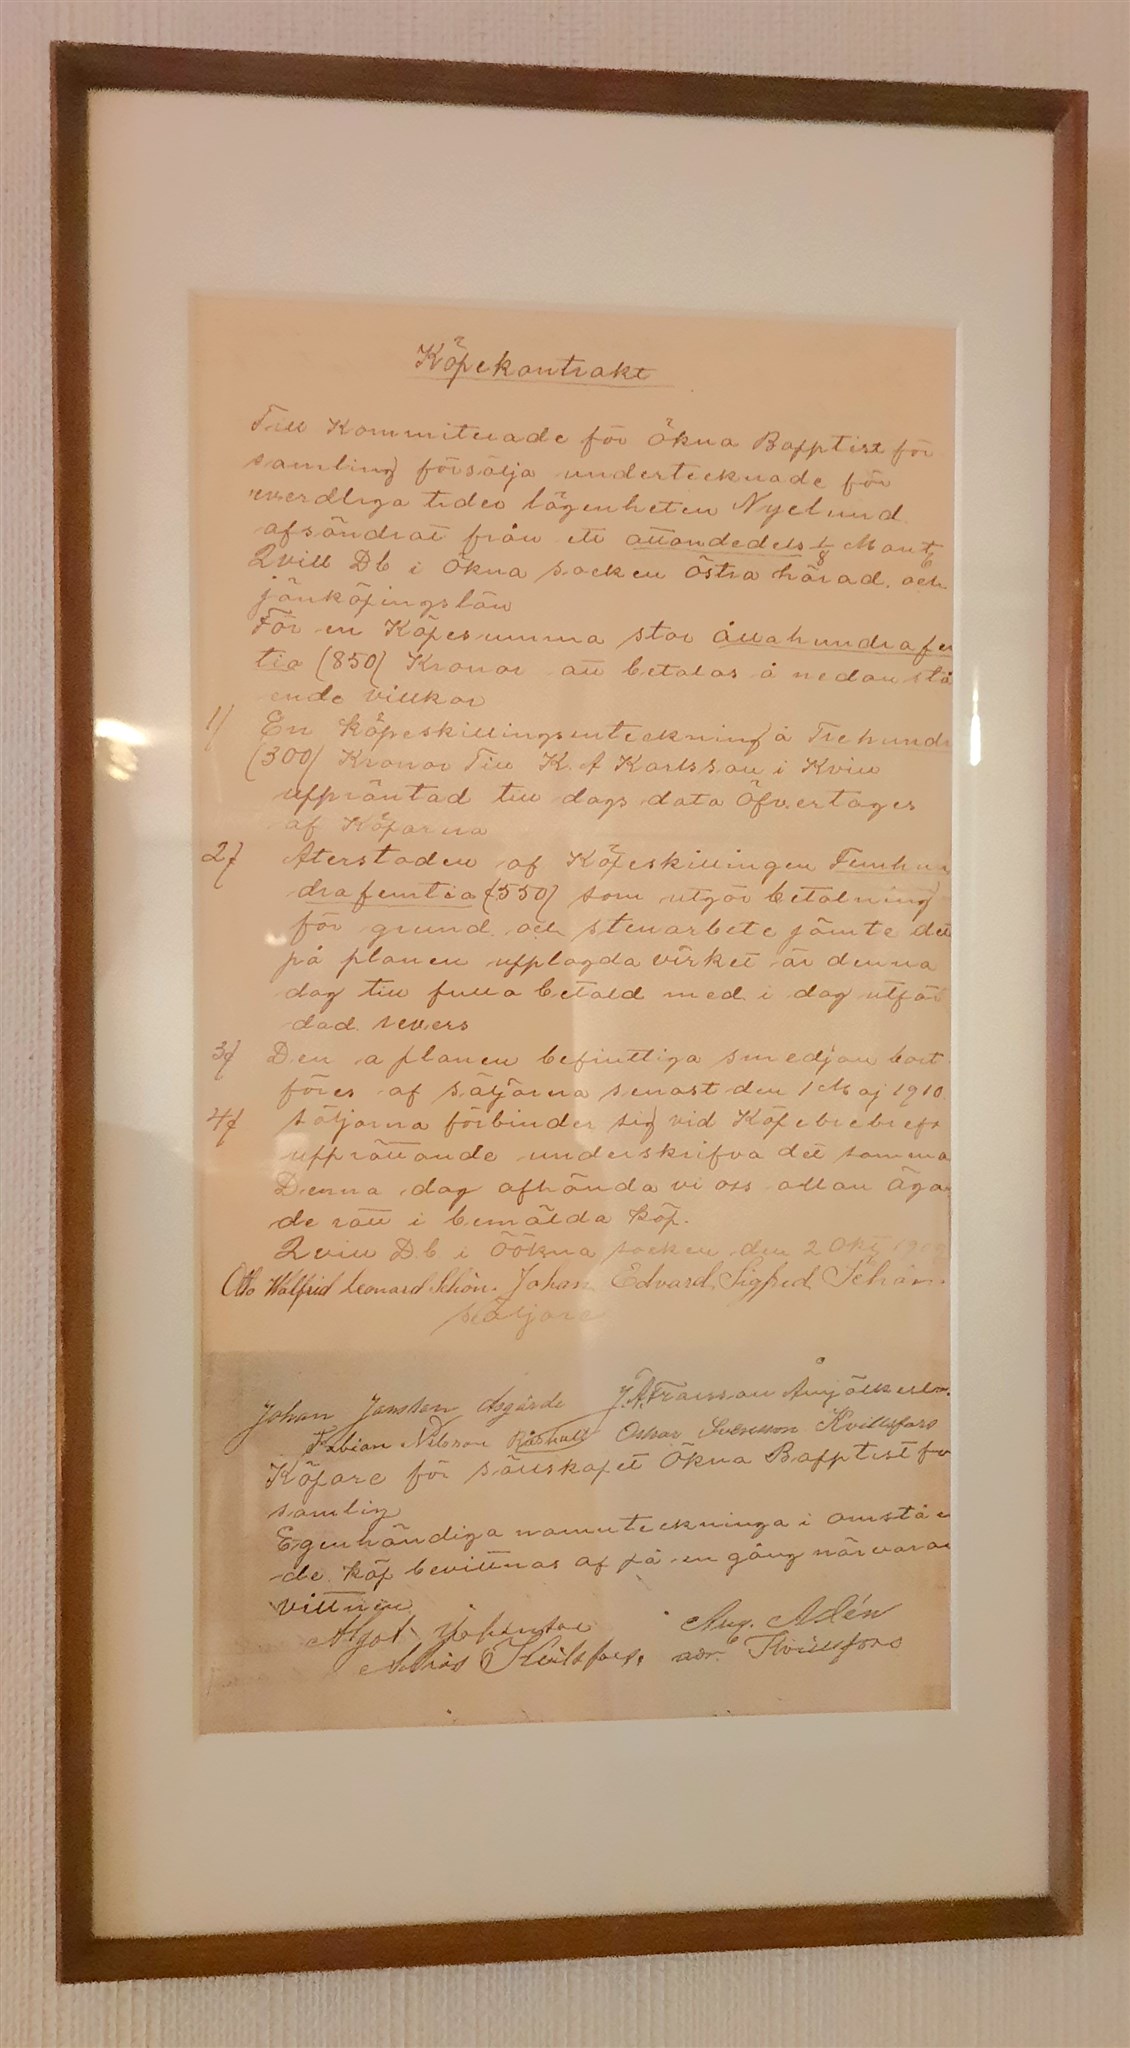 Köpekontrakt
Till Kommiterade för Ökna Bapptist för
samling försälja undertecknade för
everdliga tider lägenheten Nyelund
afsöndrat från ett attondedels 1/8 Mant
Qvill Db i Ökna socken östra härad och
jönköpingslän
För en Köpesumma stor åttahundrafem
tio (850) Kronor att betalas å nedanstå
ende villkor
1/ En köpeskillingsinteckning å Trehundr
(300) Kronor Till K. A Karlsson i Kvill
uppräntad till dags data Öfvertages
af Köparna
2/ Återstoden af Köpeskillingen Femhun
drafemtio (550) som utgör betalning
för grund och stenarbete jämte det
på planen upplagda virket är denna
dag till fullo betald med i dag utfär
dad revers
3/ Den a planen befintliga smedjan bort
föres af säljarna senast den 1 Maj 1910.
4/ Säljarna förbinder sig vid Köpebrebrefs
upprättande underskrifva det samma
Denna dag afhända vi oss allan ägan
de rätt i bemälda köp.
Qvill D.b i Öökna socken den 2 Okt
Otto Walfrid Leonard Schön. Johan Edvard Sigfrid Schön.
Säljare
Johan Jonsson Asgärde J.A. Fransson
Fabian Nilsson Råshult Oskar Svensson Kvillsfors
Köpare för sällskapet Ökna Bapptist för
samling
Egenhändiga namnteckninga i omståe
de köp bevittnas af på en gång närvaran
vittnen
Algot Aug. Adén
Kvillsfors, adr. Kvillsfors